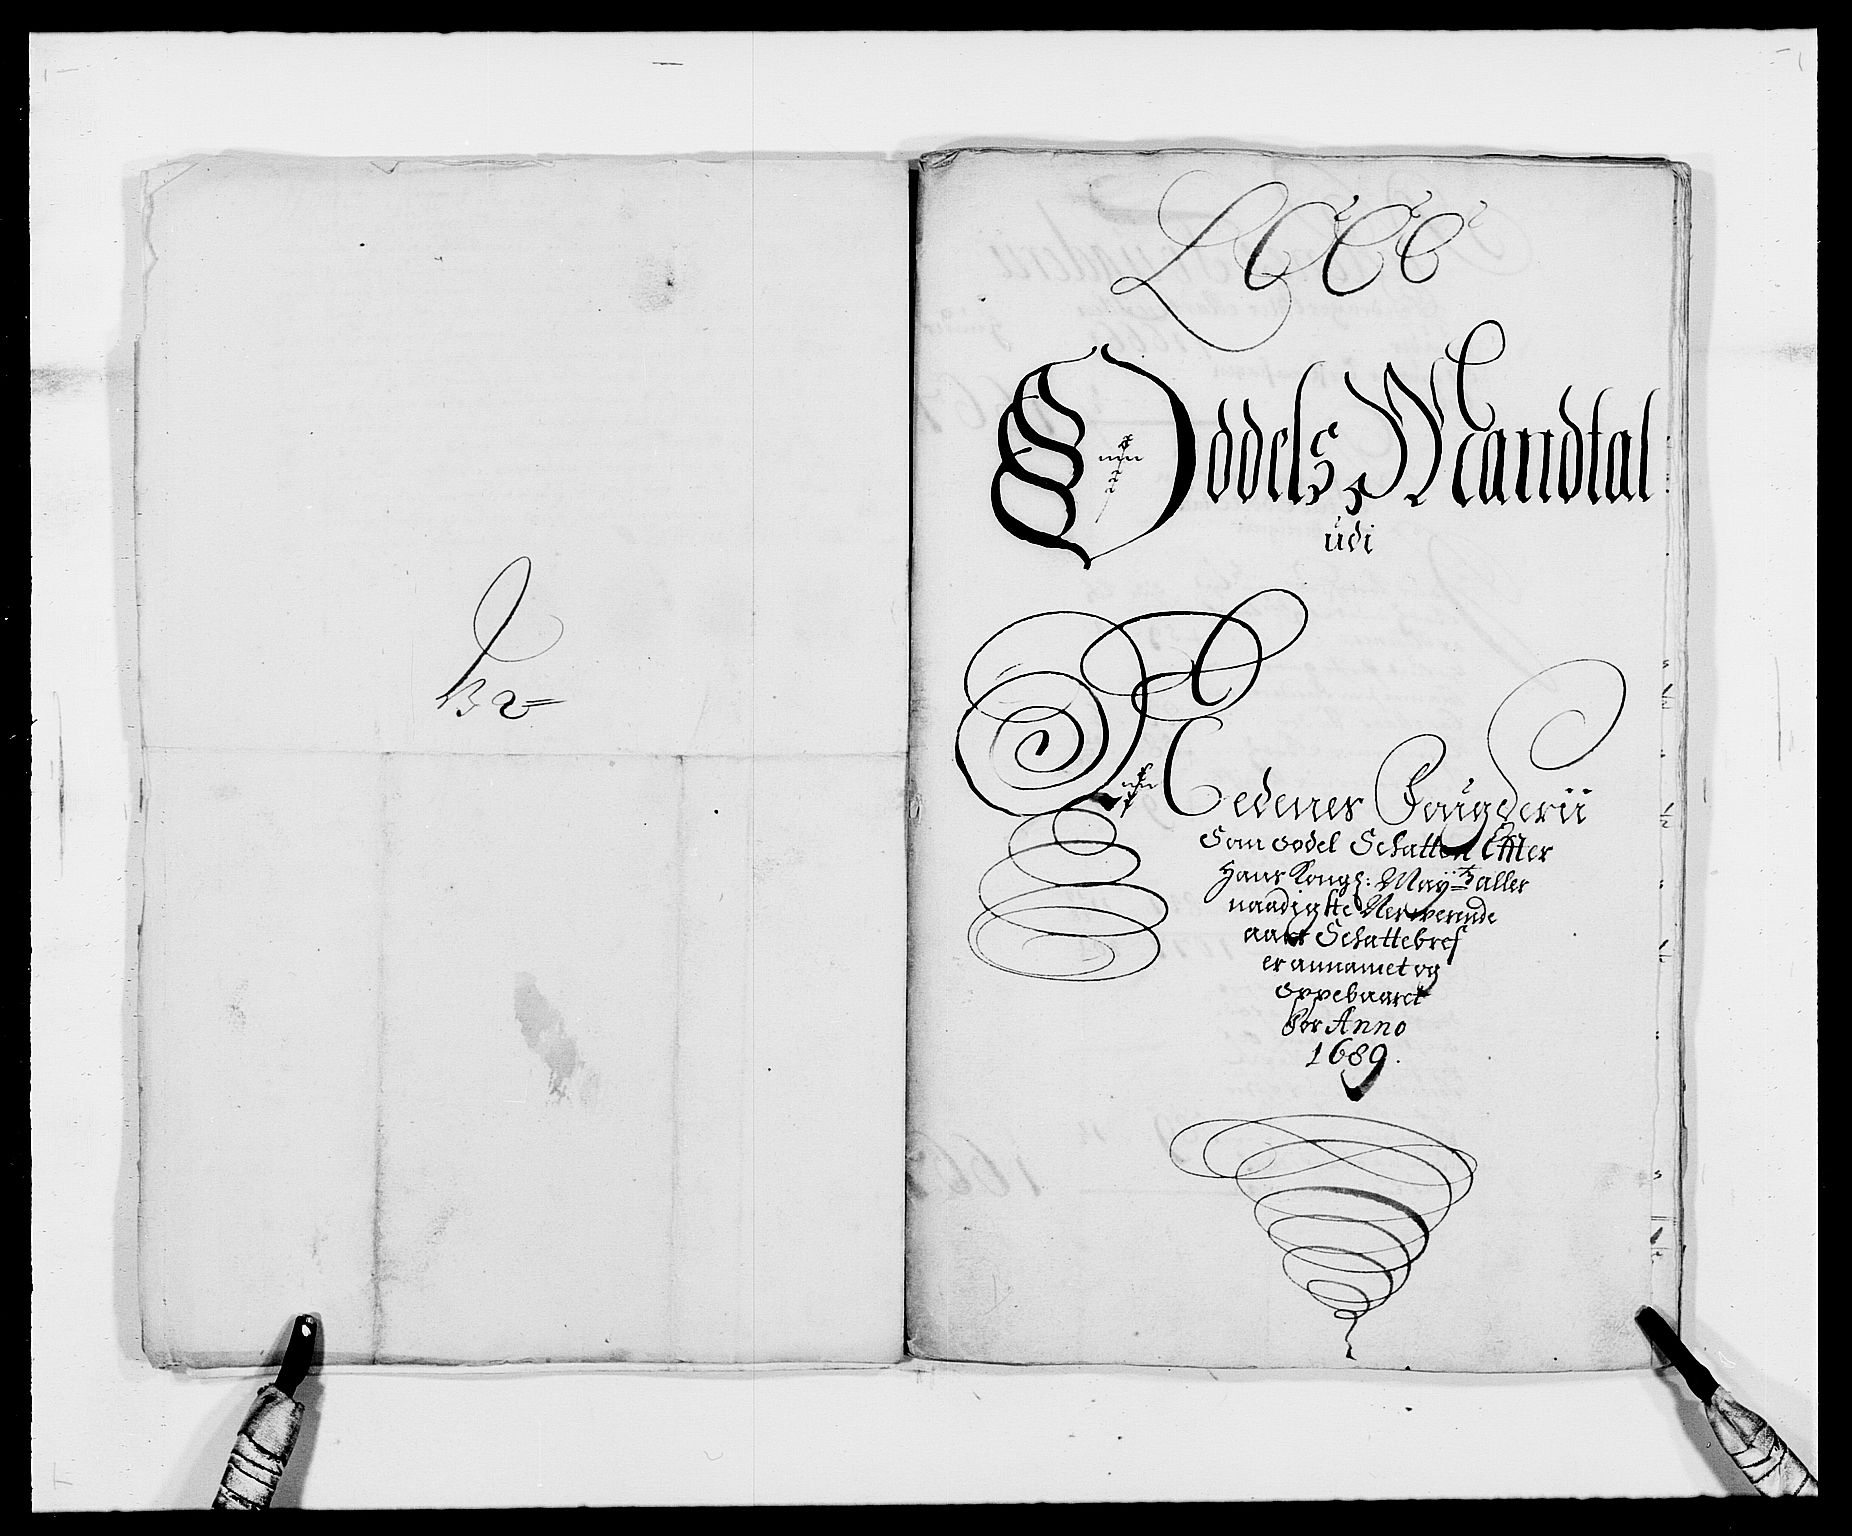 Oddels Mandtal
udi
Nedenes Fougderii
Som oodel Schatten Effter
Hans Kongl: May:tz aller
naadigste Nerwerende
aars Schattebref
er annamet og
oppebaaret
for Anno
1689.